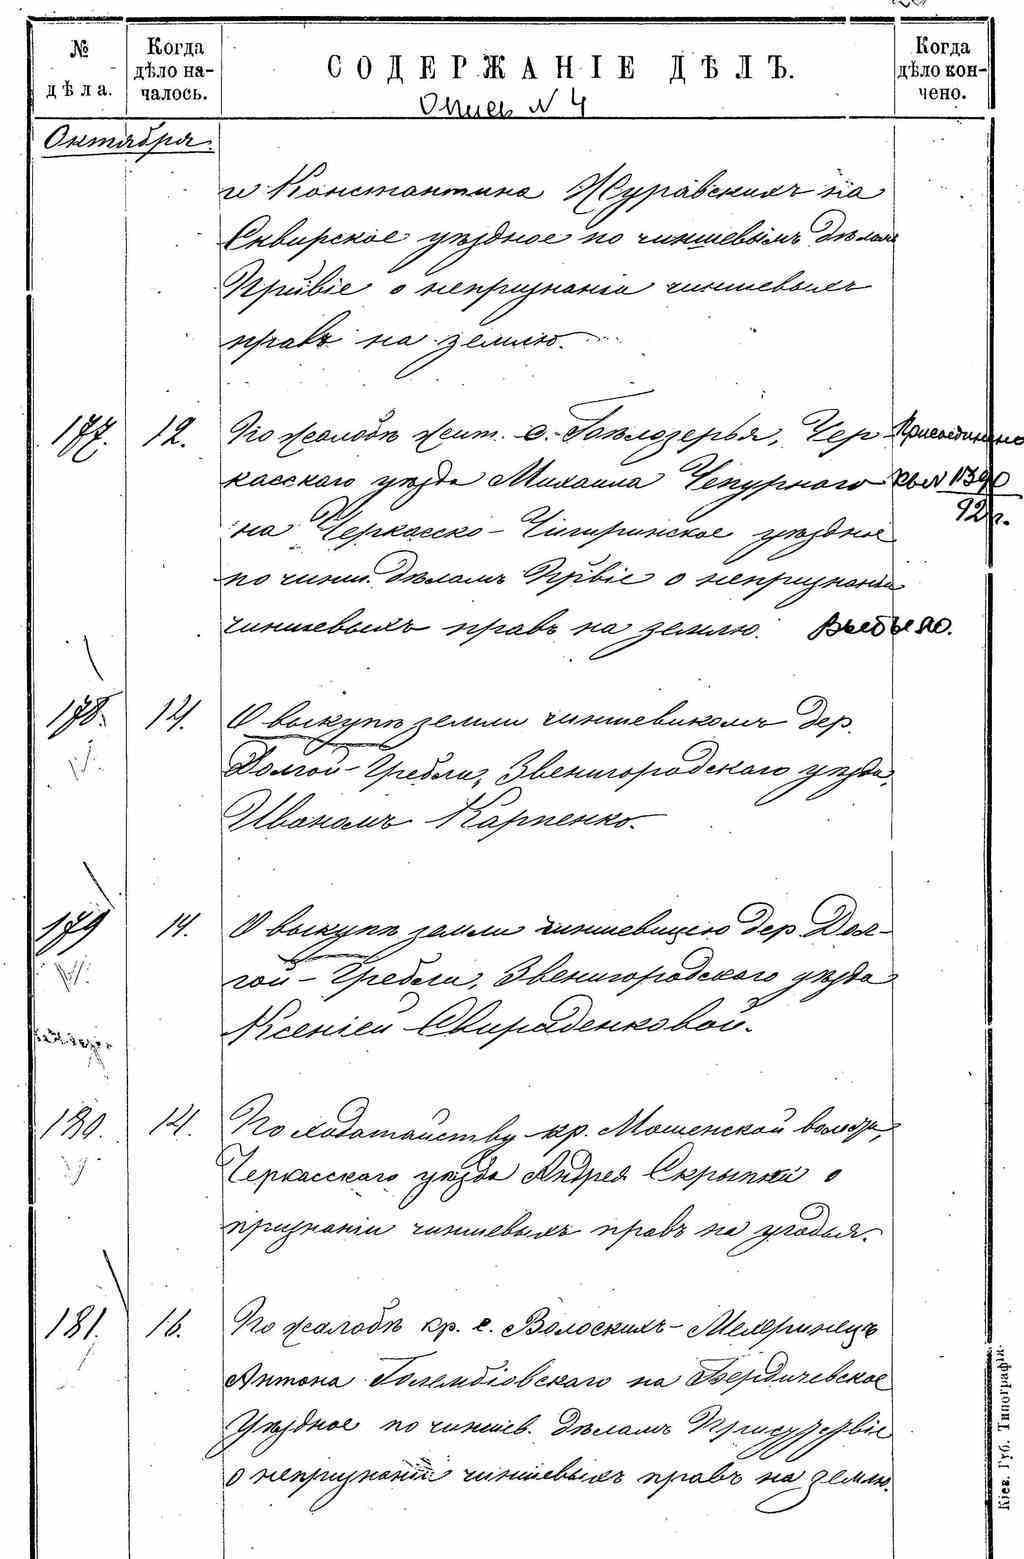 № дѣла.
Когда дѣло на-
чалось.
СОДЕРЖАНІЕ ДѢЛЪ.
Когда дѣло кон-
чено.
Опись N 4
Октября.
и Константина Журавскихъ на
Сквирское уѣздное по чиншевымъ дѣламъ
Пр͠ивіе о непризнаніи чиншевыхъ
правъ на землю.
177. 12. По жалобѣ жит. с. Бѣлозерья, Чер- Присоединено
касскаго уѣзда Михаила Чепурного къ N 11390
на Черкасско-Чигиринское уѣздное 92 г.
по чинш. дѣламъ Пр͠віе о непризнаніи
чиншевыхъ правъ на землю. Выбыло.
178. 14. О выкупѣ земли чиншевикомъ дер.
Долгой-Гребли, Звенигородскаго уѣзда,
Иваномъ Карпенко.
179 14. О выкупѣ земли чиншевицею дер. Дол-
гой-Гребли, Звенигородскаго уѣзда
Ксеніей Свираденковой.
180. 14. По ходатайству кр. Мошенской волости,
Черкасскаго уѣзда Андрея Скрыпки о
признаніи чиншевыхъ правъ на угодья.
181. 16. По жалобѣ кр. с. Волоскихъ-Мехеринецъ
Антона Голембіовскаго на Бердичевское
Уѣздное по чиншев. дѣламъ
о непризнаніи чиншевыхъ правъ на землю.
Кіев. Губ. Типографія.